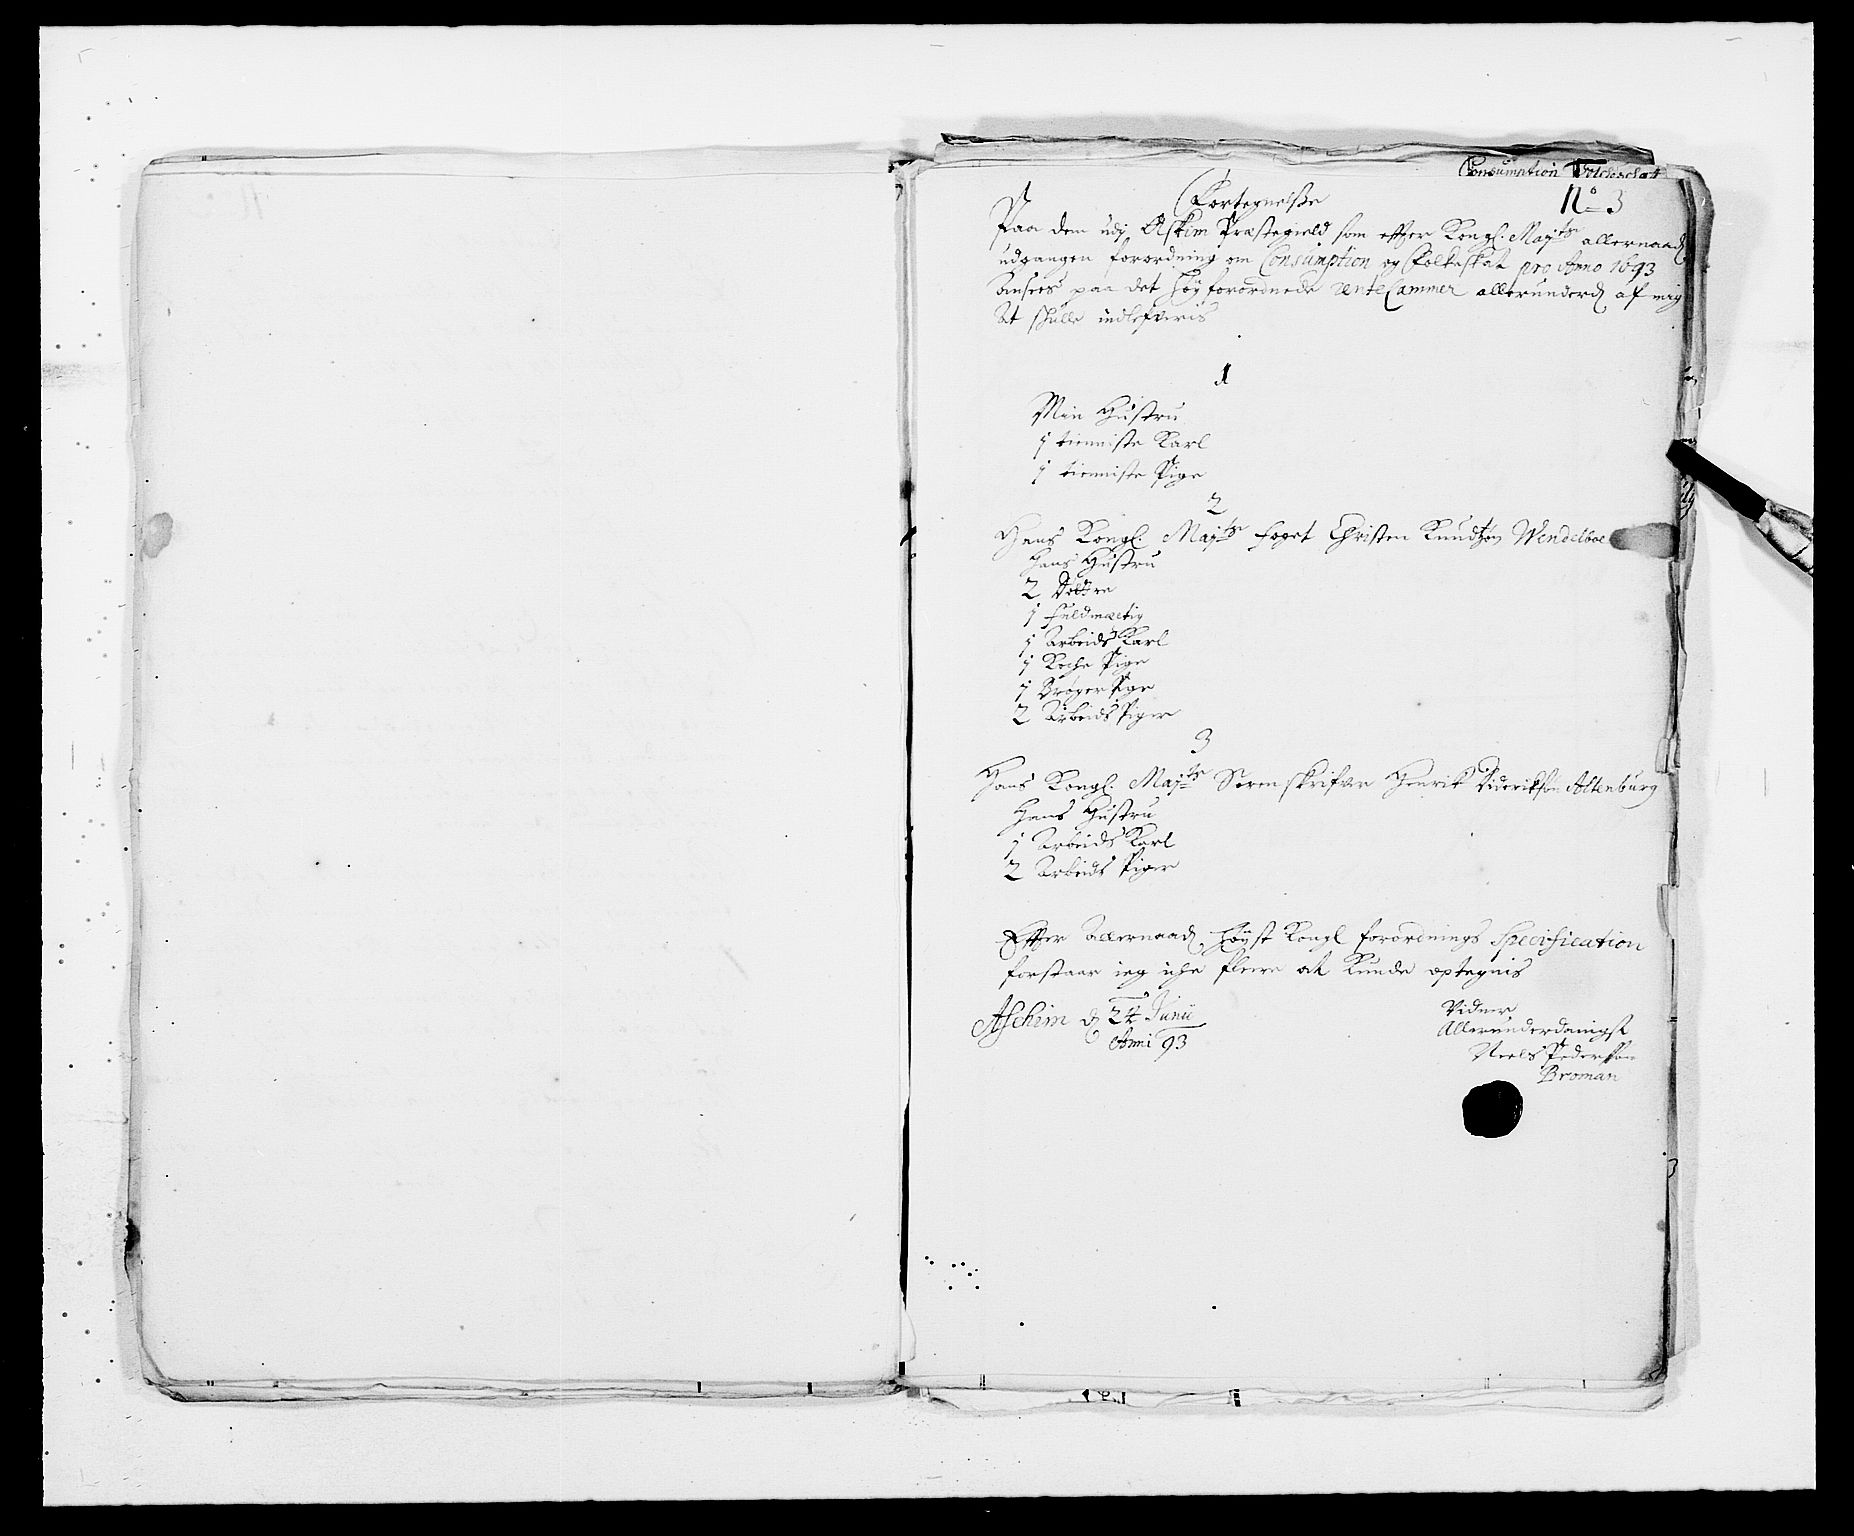 Consumption Folcheschat
No 3
Fortegnelse
Paa dem udj Askim Præstegield som effter Kongl. Mayts allernaad.
udgangen forordning om Consumption og Folkeskat pro Anno 1693
ansees paa det høyforordnede RenteCammer allerunderd af mig
At skulle indlefveris
1
Min Hustru
1 tienniste Karl
1 tienniste Pige
2
Hans Kongl. Mayts foget Christen Knudtzøn Wendelboe
Hans Hustru
2 Døttre
1 fuldmæctig
1 Arbeids Karl
1 Koche Pige
1 Brøger Pige
2 Arbeids Piger
3
Hans Kongl. Mayts Sorenskrifver Henrik Diderikssøn Altenburg
Hans Hustru
1 Arbeids Karl
2 Arbeids Piger
Effter Allernaad. høyst Kongl forordnings Specification
forstaar ieg iche fleere at kunde optegnis
Aschim d 24 Junii
Anni 93
Vidner
Allerunderdanigst
Neels Pederssøn
Broman